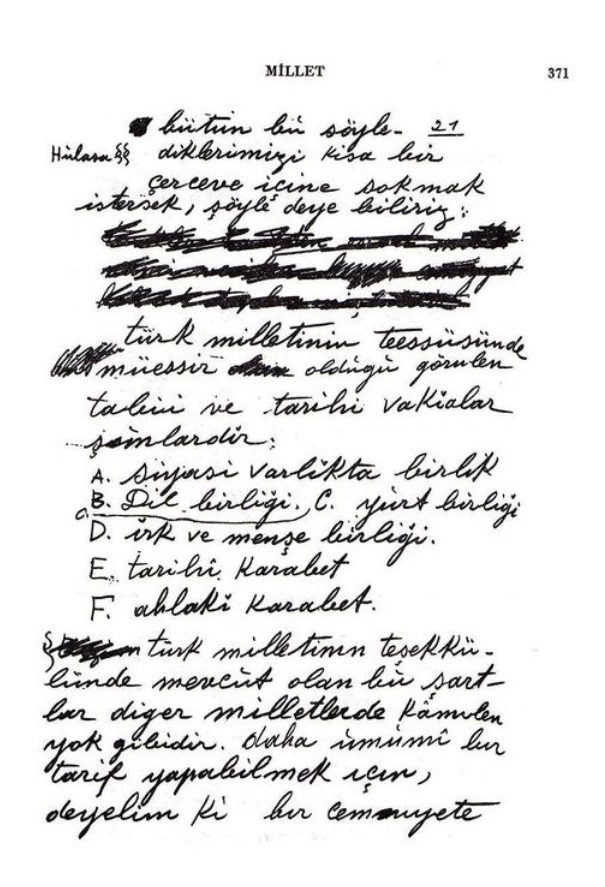 MİLLET 371
bütün bu söyle- 21
Hülasa §§ diklerimizi kısa bir
çerceve içine sokmak
istersek, şöyle deye biliriz:
türk milletinin teessüsünde
müessir olduğu görülen
tabii ve tarihi vakialar
şunlardır:
A. siyasi varlıkta birlik
B. Dil birliği. C. yurt birliği
D. ırk ve menşe birliği.
E. tarihî karabet
F. ahlakî karabet.
türk milletinin teşekkü-
lünde mevcut olan bu şart-
lar diger milletlerde kâmilen
yok gibidir. daha ümümî bir
tarif yapabilmek için,
deyelim ki bir cemiyete